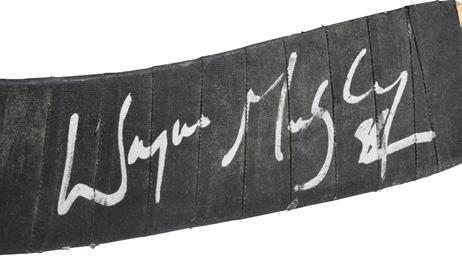 Wayne Gretzky